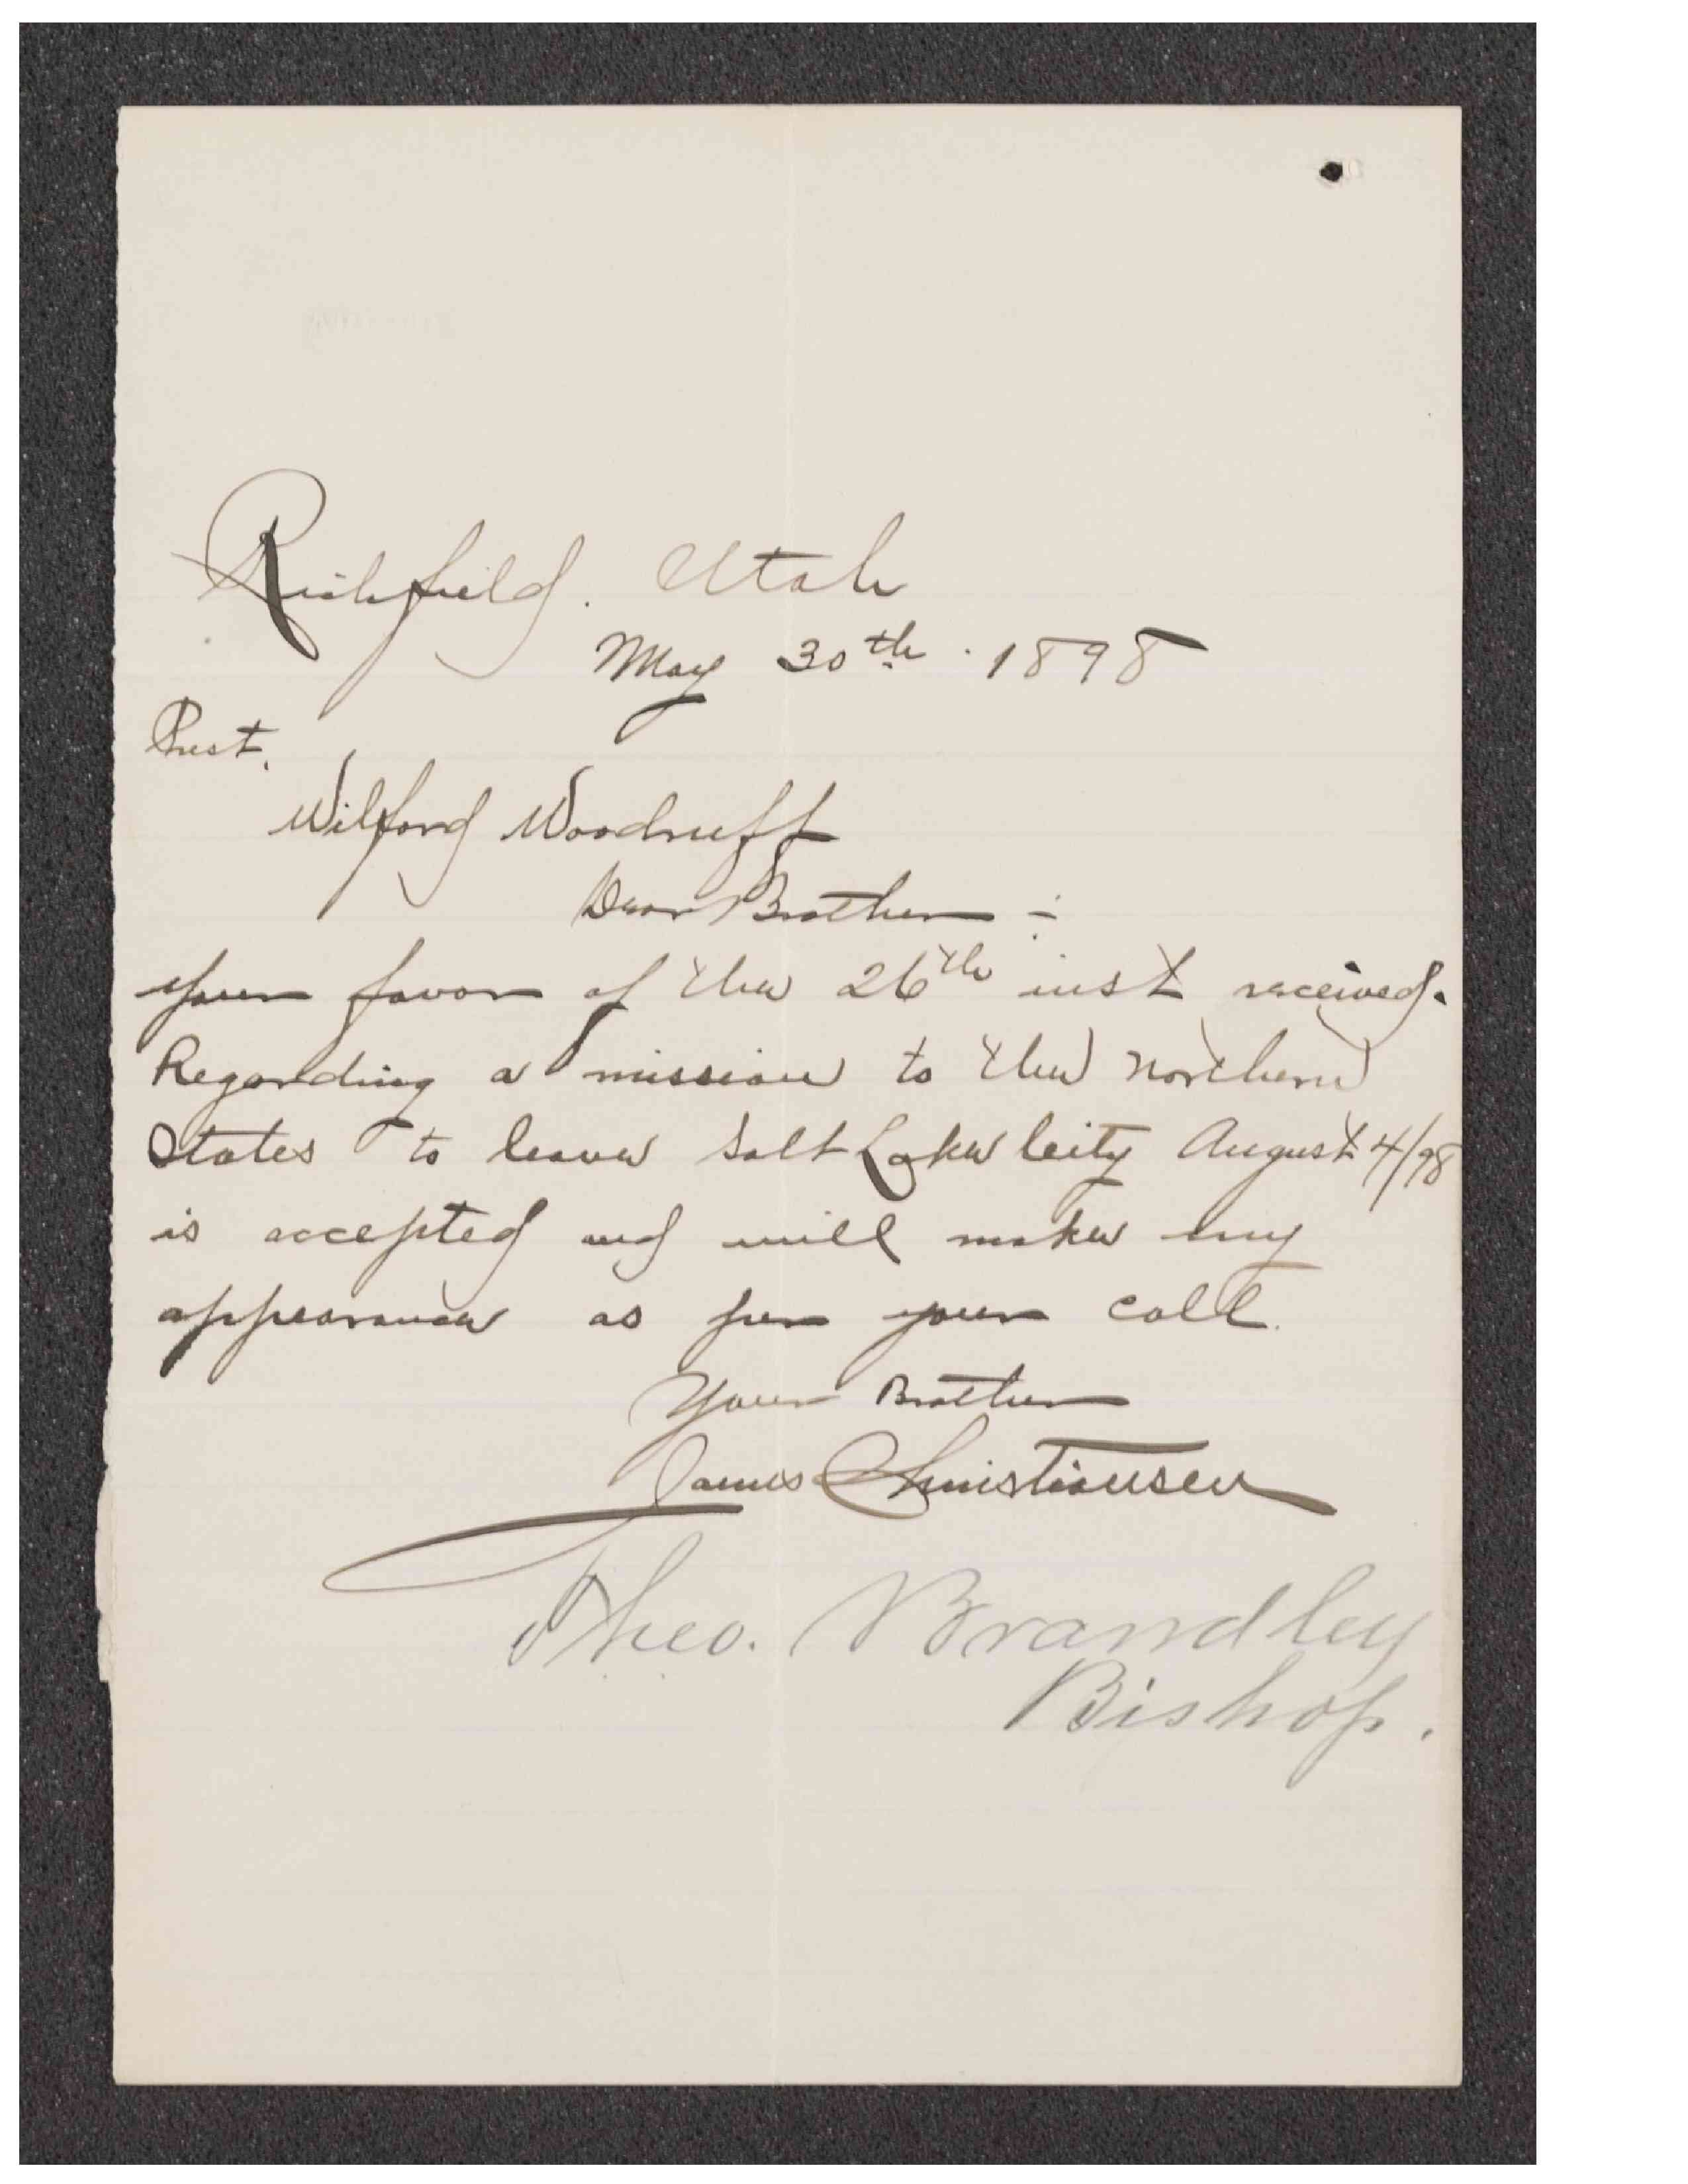 Richfield. Utah
May 30th. 1898
Prest.
Wilford Woodruff
Dear Brother :-
your favor of the 26th inst received.
Regarding a mission to the Northern
States to leave Salt Lake City August 4/98
is accepted and will make my
appearance as per your call.
Your Brother
James Christiansen
Theo. Brandley
Bishop.